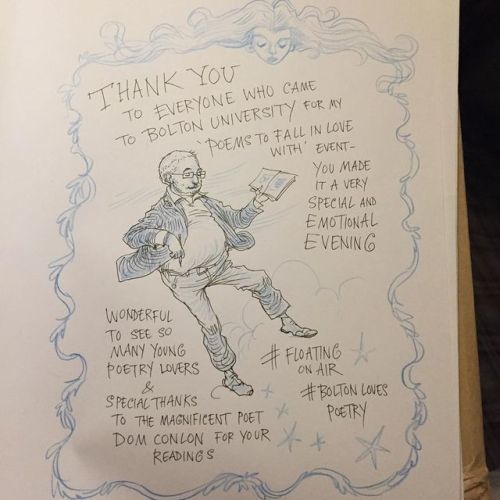 THANK YOU
TO EVERYONE WHO CAME
TO BOLTON UNIVERSITY FOR MY
'POEMS TO FALL IN LOVE
WITH' EVENT-
YOU MADE
IT A VERY
SPECIAL AND
EMOTIONAL
EVENING
WONDERFUL
TO SEE SO
MANY YOUNG
POETRY LOVERS
&
SPECIAL THANKS
TO THE MAGNIFICENT POET
DOM CONLON FOR YOUR
READINGS
# FLOATING
ON AIR
# BOLTON LOVES
POETRY